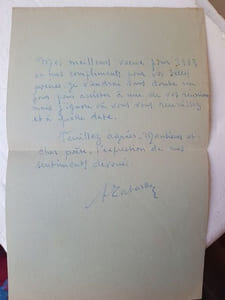 Mes meilleurs voeux pour
et mes compliments pour vos belles
poésies. Je viendrai sans doute un
jour pour assister à une de vos réunions
mais j'ignore où vous vous réunissez
et à quelle date.
Veuillez agréer, Monsieur et
cher poète, l'expression de mes
sentiments dévoués.